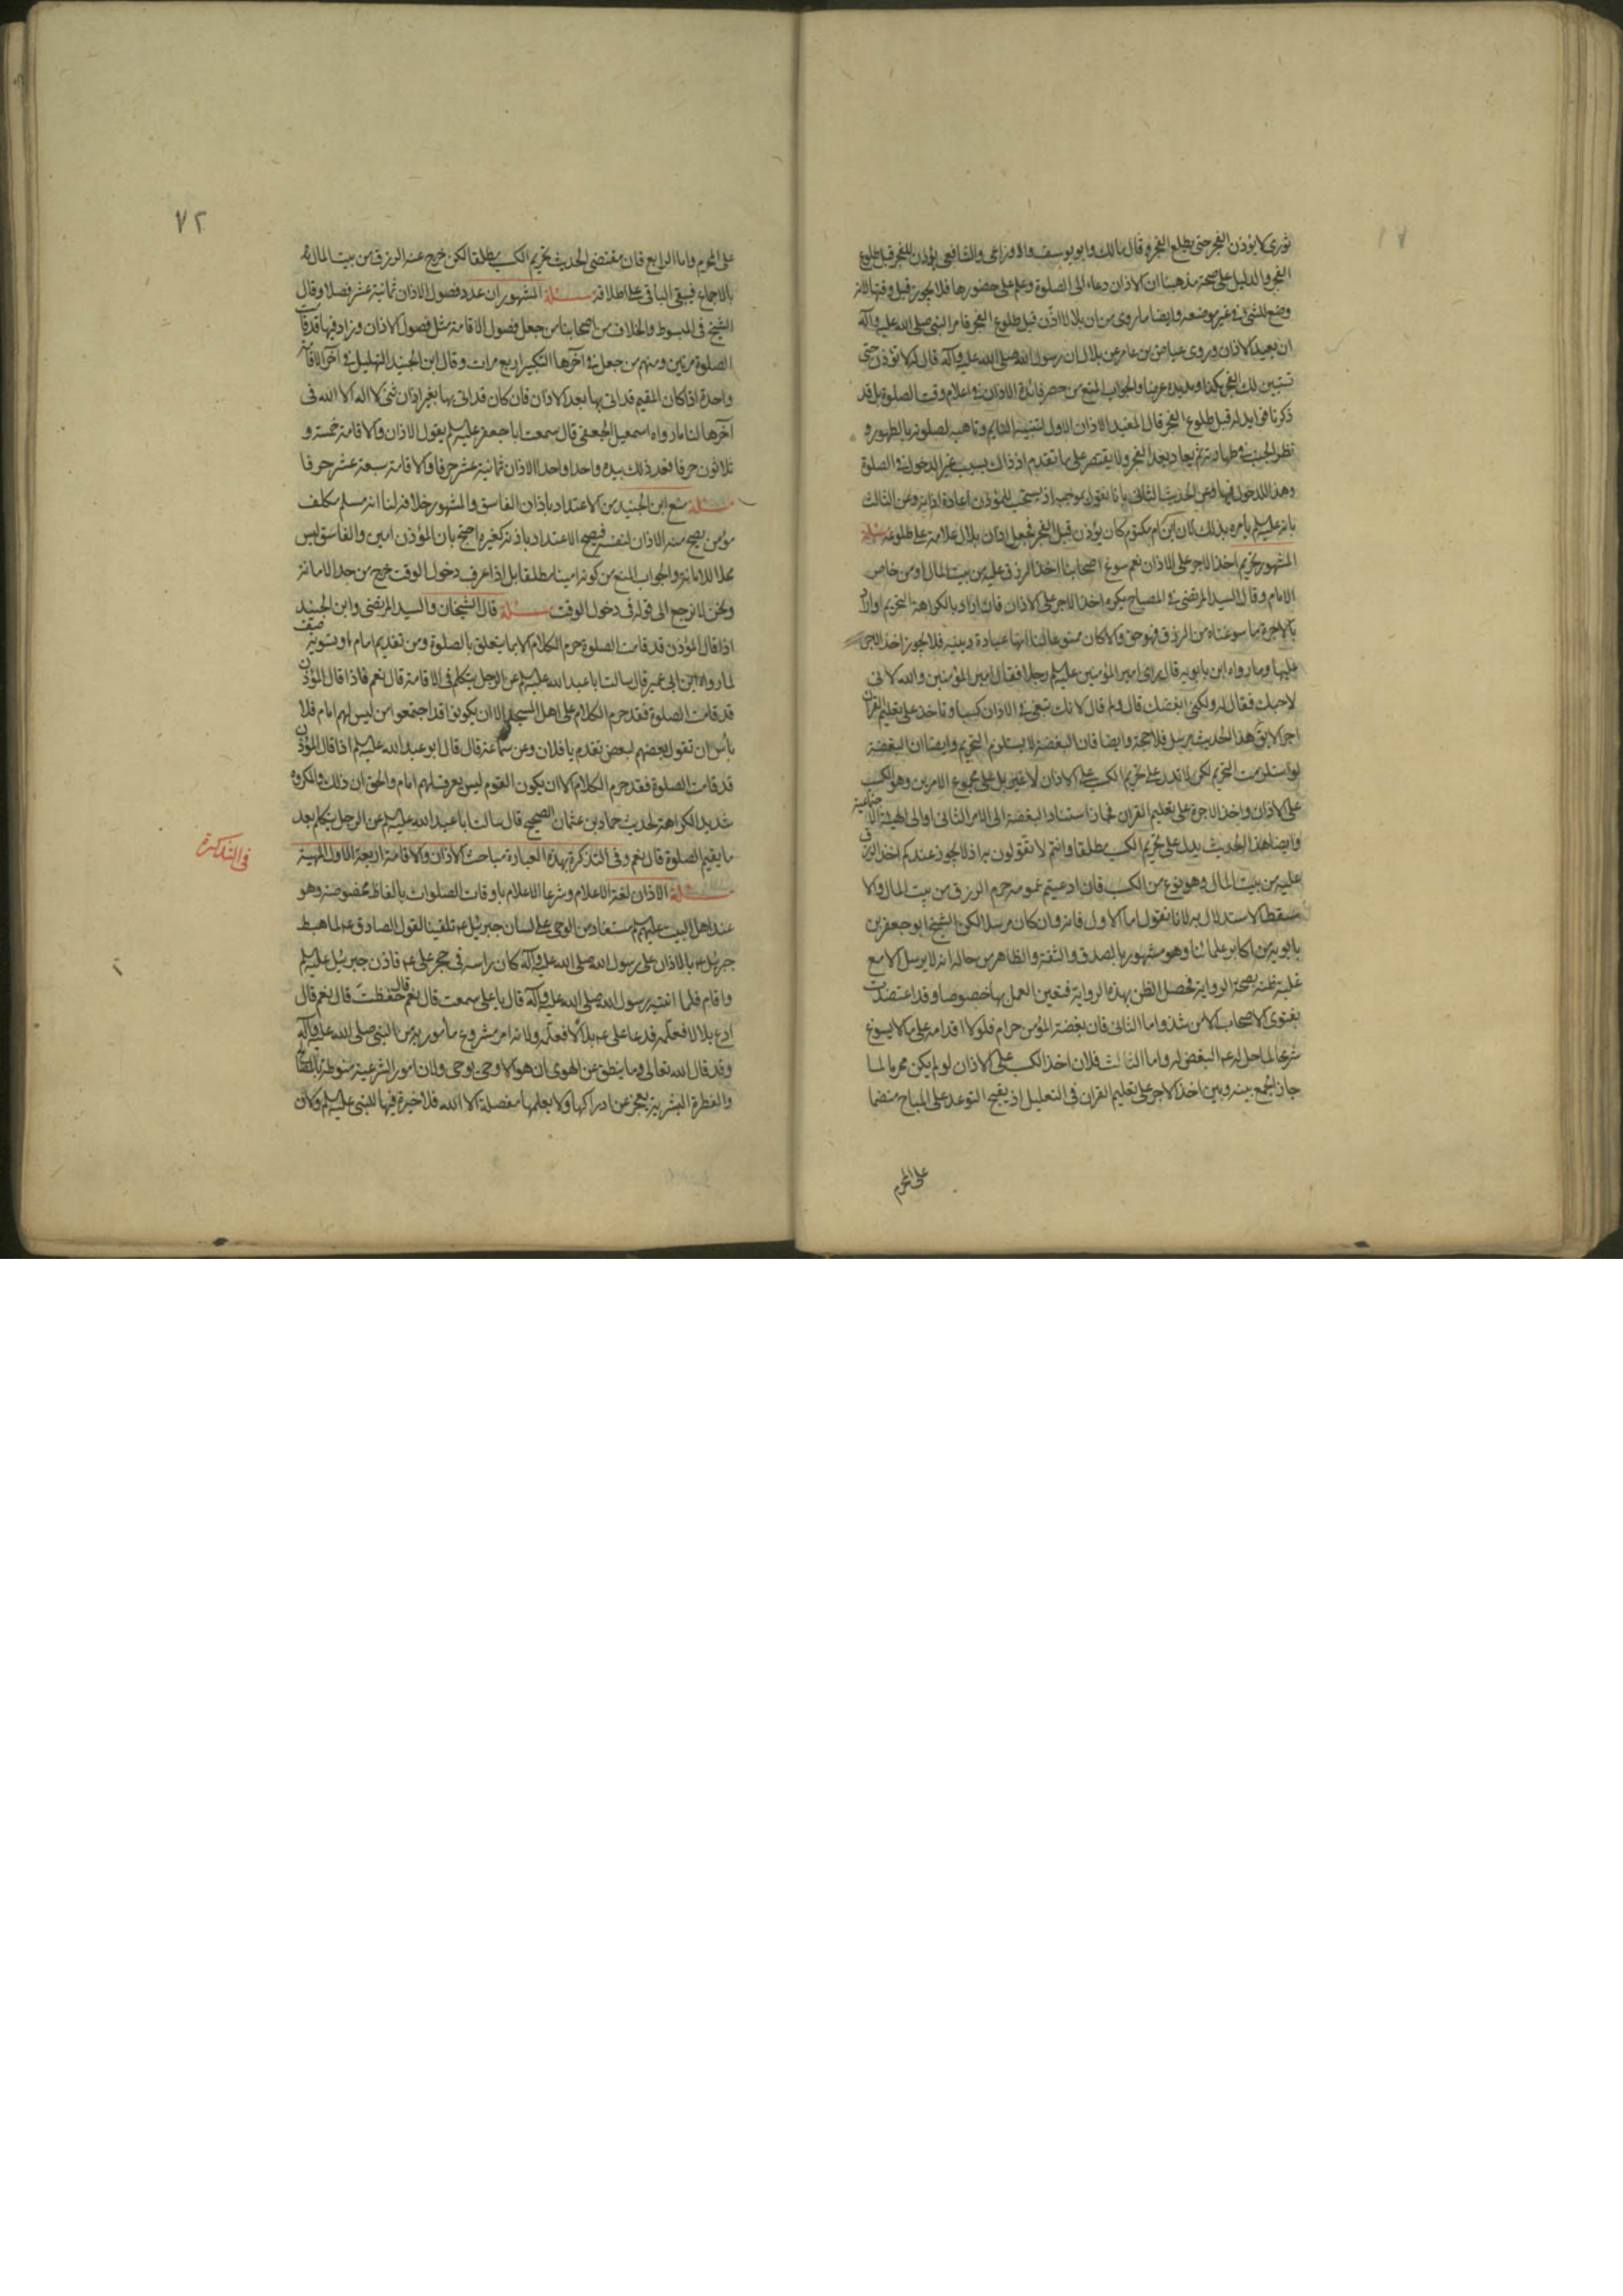 ثوري لا يؤذن الفجر حتى يطلع الفجر وقال مالك وابو يوسف والاوزاعي والشافعي يؤذن للفجر قبل طلوع
الفجر والدليل على صحة مذهبنا ان الاذان دعاء الى الصلوة وعلم على حضورها فلا يجوز قبل وقتها لانه
وضع للشئ في غير موضعه وايضا ما روى من ان بلالا اذن قبل طلوع الفجر فامر النبي صلى الله عليه وآله
ان يعيد الاذان وروى عياض بن عامر عن بلال ان رسول الله صلى الله عليه وآله قال له لا تؤذن حتى
تستبين لك الفجر هكذا ومد يده عرضا والجواب المنع من حصر فائدة الاذان في اعلام وقت الصلوة بل قد
ذكرنا فوايد له قبل طلوع الفجر قال المفيد الاذان الاول لتنبيه النايم وتاهبه لصلوته بالطهور و
نظر الجنب في طهارته ثم يعاد بعد الفجر ولا يقتصر على ما تقدم اذ ذاك بسبب غير الدخول في الصلوة
وهذا للدخول فيها وعن الحديث الثاني بانا نقول بموجبه اذ يستحب للمؤذن اعادة اذانه وعن الثالث
بانه عليه السلم يامره بذلك لان ابن ام مكتوم كان يؤذن قبل الفجر فجعل اذان بلال علامة على طلوعه مسئلة
المشهور تحريم اخذ الاجر على الاذان نعم سوغ اصحابنا اخذ الرزق عليه من بيت المال او من خاص
الامام وقال السيد المرتضى في المصباح يكره اخذ الاجر على الاذان فان اراد بالكراهة التحريم او اراد
بالاجرة ما سوغناه من الرزق فهو حق والا كان ممنوعا لنا انها عبادة دينيه فلا يجوز اخذ الاجر
عليها وما رواه ابن بابويه قال راى امير المؤمنين عليه السلم رجلا فقال امير المؤمنين والله لا ني
لاحبك فقال له ولكني ابغضك قال ولم قال لانك تبغي في الاذان كسبا وتاخذ على تعليم القران
اجرا لا يق هذا الحديث مرسل فلا حجة وايضا فان البغضة لا يستلزم التحريم وايضا ان البغضة
لو استلزمت التحريم لكن لا تدل على تحريم الكسب على الاذان لا غير بل على مجموع الامرين وهو الكسب
على الاذان واخذ الاجرة على تعليم القران فجاز استناد البغضة الى الامر الثاني او الى الهيئة الاجتماعية
وايضا هذا الحديث يدل على تحريم الكسب مطلقا وانتم لا تقولون به اذ لا يجوز عندكم اخذ الرزق
عليه من بيت المال وهو نوع من الكسب فان ادعيتم عمومه حرم الرزق من بيت المال والا
سقط الاستدلال به لانا نقول اما الاول فانه وان كان مرسلا لكن الشيخ ابو جعفر بن
بابويه من اكابر علمائنا وهو مشهور بالصدق والثقة والظاهر من حاله انه لا يرسل الا مع
غلبة ظنه بصحة الرواية فحصل الظن بهذه الرواية فتعين العمل بها خصوصا وقد اعتضدت
بفتوى الاصحاب الا من شذ واما الثاني فان بغضة المؤمن حرام فلولا اقدامه على ما لا يسوغ
شرعا لما حل له ع البغض له واما الثالث فلان اخذ الكسب على الاذان لو لم يكن محرما لما
جاز الجمع بينه وبين اخذ الاجر على تعليم القران في التعليل اذ يقبح التوعد على المباح منضما
على المحرم
٧٢
على المحرم واما الرابع فان مقتضى الحديث تحريم الكسب مطلقا لكن خرج عنه الرزق من بيت المال
بالاجماع فيبقى الباقي على اطلاقه مسئلة المشهور ان عدد فصول الاذان ثمانية عشر فصلا وقال
الشيخ في المبسوط والخلاف من اصحابنا من جعل فصول الاقامة مثل فصول الاذان وزاد فيها قد قامت
الصلوة مرتين ومنهم من جعل في آخرها التكبير اربع مرات وقال ابن الجنيد التهليل في آخر الاقامة
واحدة اذا كان المقيم قد اتى بها بعد الاذان فان كان قد اتى بها بغير اذان ثنى لا اله الا الله في
آخرها لنا ما رواه اسمعيل الجعفي قال سمعت ابا جعفر عليه السلم يقول الاذان والاقامة خمسة و
ثلاثون حرفا فعد ذلك بيده واحدا واحدا الاذان ثمانية عشر حرفا والاقامة سبعة عشر حرفا
مسئلة منع ابن الجنيد من الاعتداد باذان الفاسق والمشهور خلافه لنا انه مسلم مكلف
مؤمن يصح منه الاذان لنفسه فيصح الاعتداد باذنه كغيره احتج بان المؤذن امين والفاسق ليس
محلا للامانة والجواب المنع من كونه امينا مطلقا بل اذا عرف دخول الوقت خرج من حد الامانة
ونحن لا نرجع الى قوله في دخول الوقت مسئلة قال الشيخان والسيد المرتضى وابن الجنيد
اذا قال المؤذن قد قامت الصلوة حرم الكلام الا بما يتعلق بالصلوة ومن تقديم امام او تسوية صف
لما رواه ابن ابي عمير قال سالت ابا عبد الله عليه السلم عن الرجل يتكلم في الاقامة قال نعم فاذا قال المؤذن
قد قامت الصلوة فقد حرم الكلام على اهل المسجد الا ان يكونوا قد اجتمعوا من ليس لهم امام فلا
بأس ان تقول بعضهم لبعض تقدم يا فلان وعن سماعة قال قال ابو عبد الله عليه السلم اذا قال المؤذن
قد قامت الصلوة فقد حرم الكلام الا ان يكون القوم ليس يعرف لهم امام والحق ان ذلك مكروه
شديد الكراهة لحديث حماد بن عثمان الصحيح قال سالت ابا عبد الله عليه السلم عن الرجل يتكلم بعد
ما يقيم الصلوة قال نعم وفي التذكرة بهذه العبارة مباحث الاذان والاقامة اربعة الاول المهية
في التذكرة
مسئلة الاذان لغة الاعلام وشرعا الاعلام باوقات الصلوات بالفاظ مخصوصة وهو
عند اهل البيت عليهم السلم مستفاد من الوحي على لسان جبرئيل ع تلقينا لقول الصادق ع لما هبط
جبرئيل ع بالاذان على رسول الله صلى الله عليه وآله كان راسه في حجر علي ع فاذن جبرئيل عليه السلم
واقام فلما انتبه رسول الله صلى الله عليه وآله قال يا علي سمعت قال نعم قال حفظت قال نعم قال
ادع بلالا فعلمه فدعا علي ع بلالا فعلمه ولانه امر مشروع مأمور به من النبي صلى الله عليه وآله
وقد قال الله تعالى وما ينطق عن الهوى ان هو الا وحي يوحى ولان امور الشرعية منوطة بالمصالح
والفطرة البشرية تعجز عن ادراكها ولا يعلمها مفصلة الا الله فلا خيرة فيها للنبي عليه السلم ولان